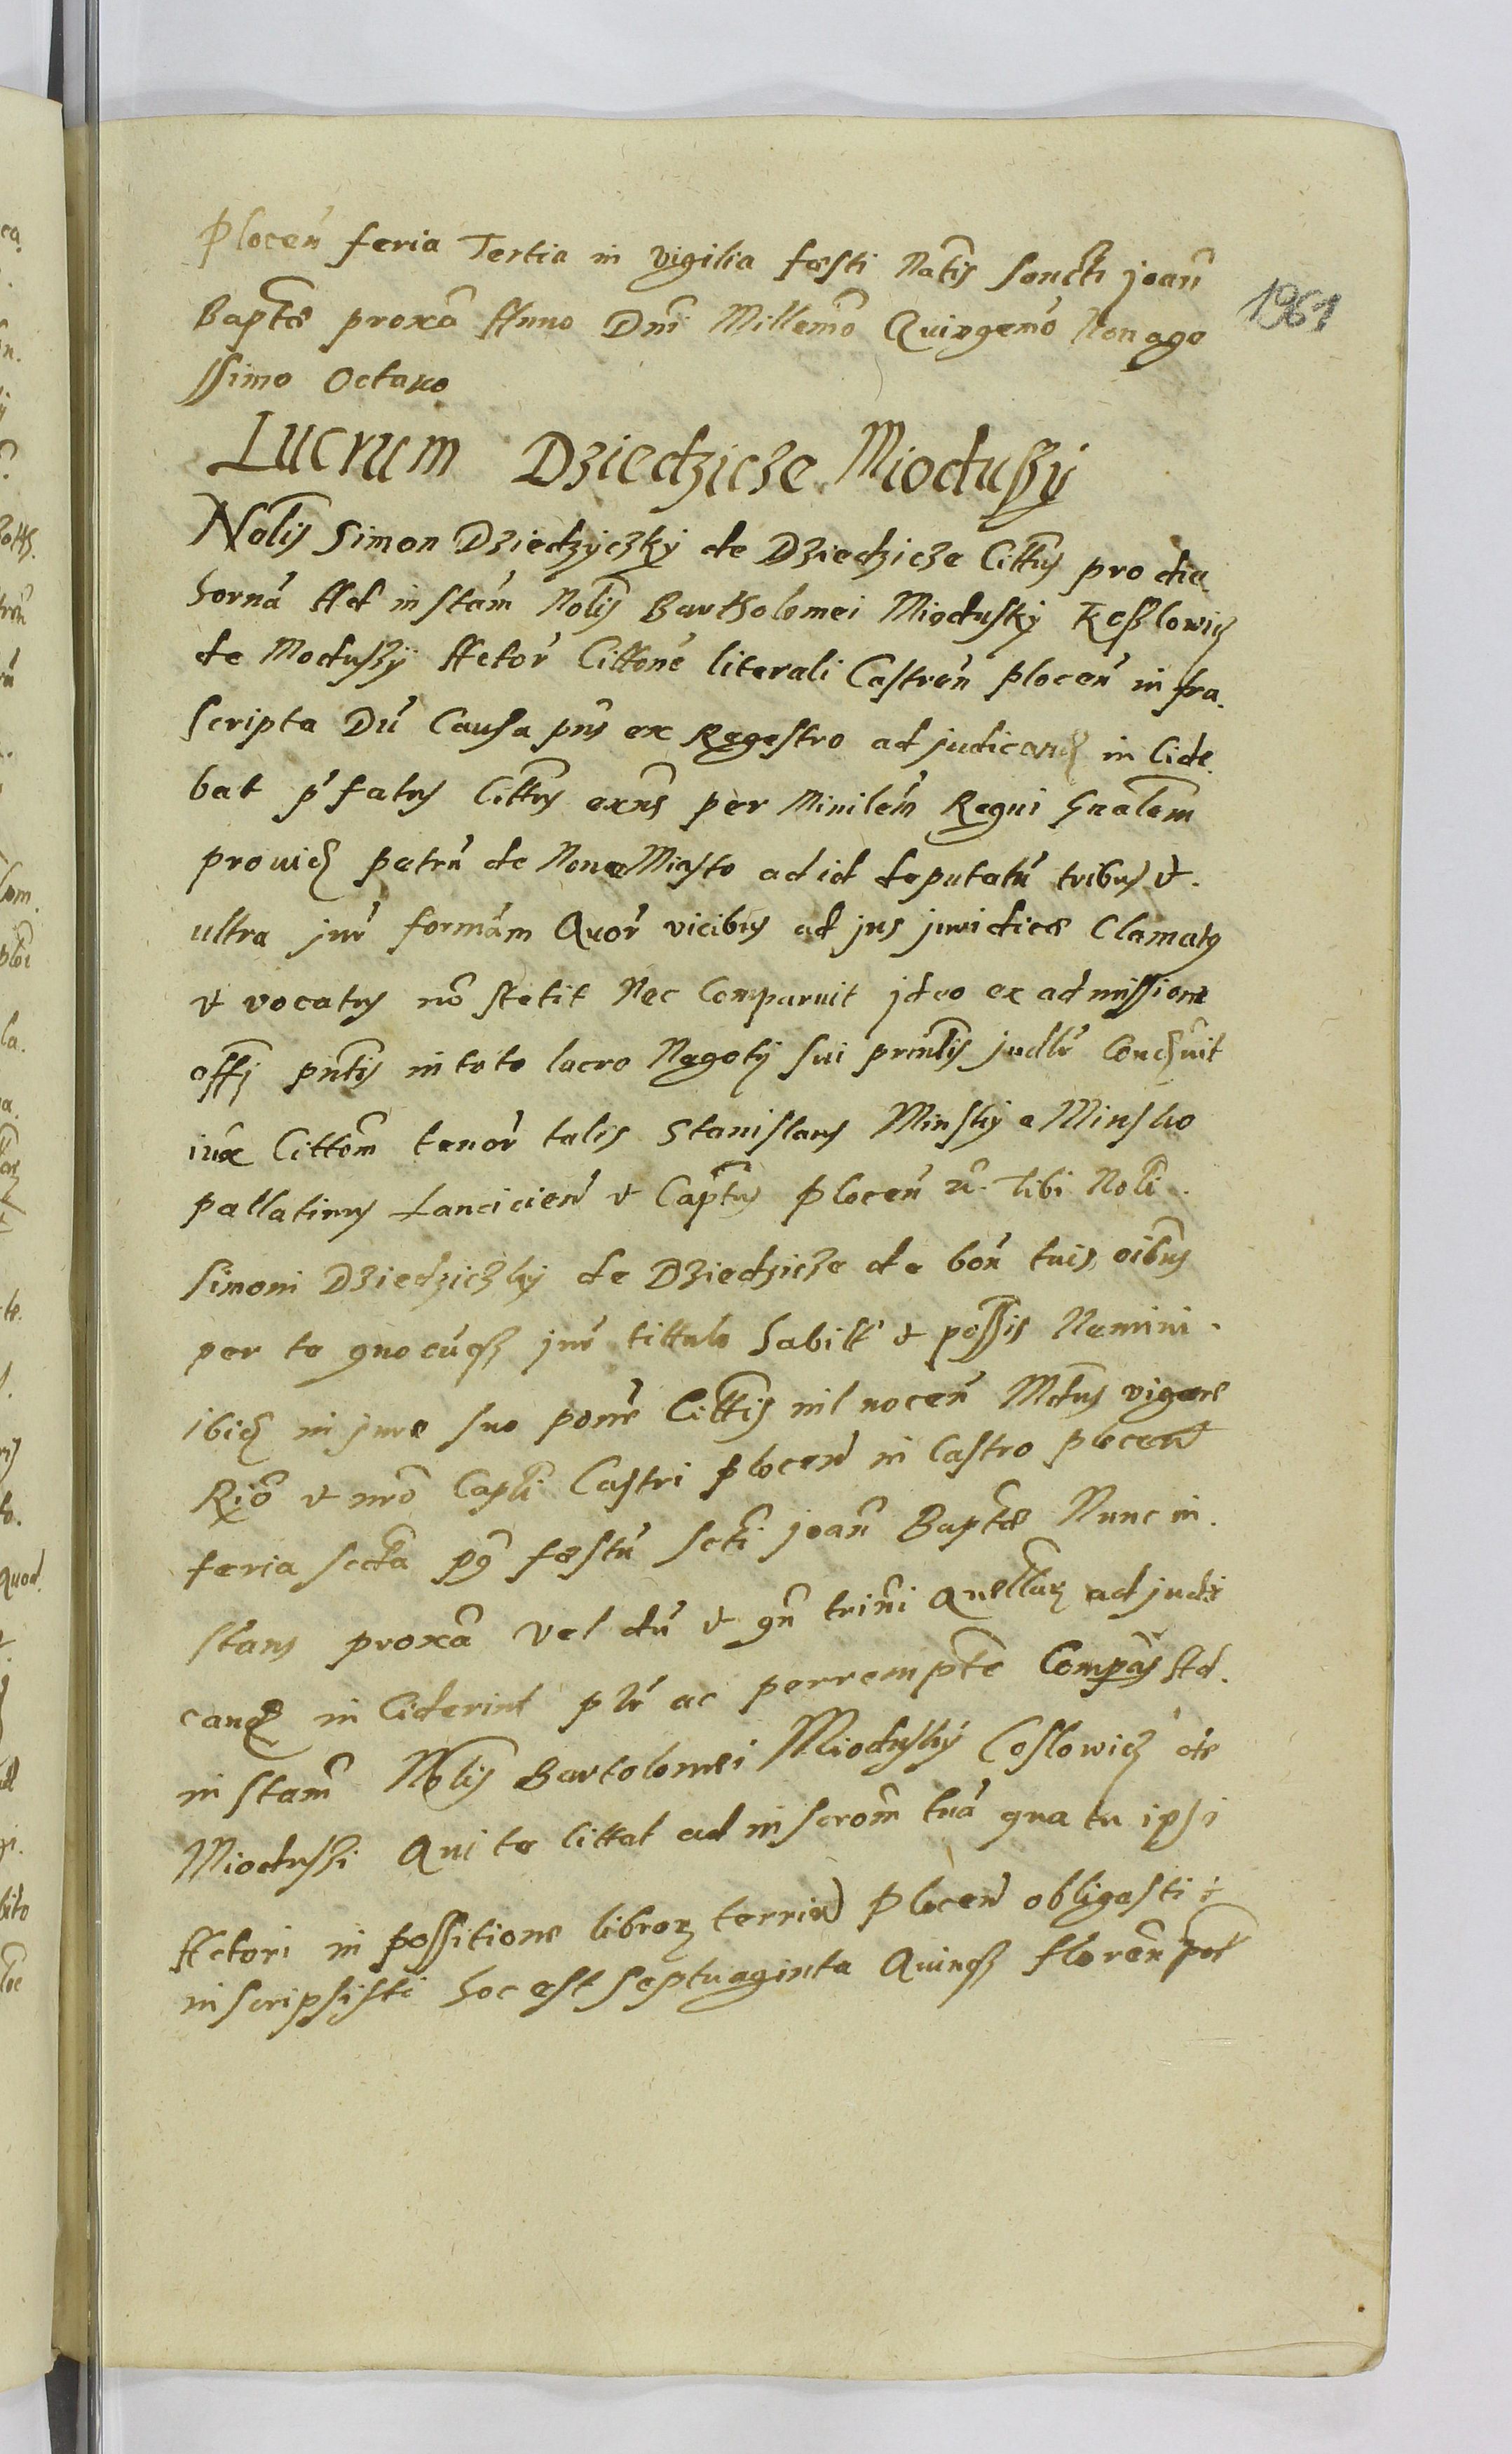 Plocen̄ feria Tertia in vigilia festi Natīs Sanctī joan̄
Baptæ proxa Anno Dnī Millemō Quingemō Nonage
1961
ssimo Octavo
Lucrum Dziedzicze Mioduszÿ
Nolīs Simon Dziedzÿczkÿ de Dziedzicze Cittūs pro die
hornā Ad in stām Nolīs Bartholomei Mioduskÿ Koszlowicz
de Moduszÿ Actōr Cittōne literali Castren̄ plocen̄ in fra
scripta Dū Causa pns̄ ex Regestro ad judicand in Cide
bat p̄fatus Cittūs exn̄s per Minilēm Regni Gnalēm
provid petrū de Nove Miasto ad id deputatū tribus et
ultra jur̄ formām Quōr vicibus ad jus juridice Clamatus
et vocatus nō stetit Nec Comparuit jdeo ex admissione
offi pn̄tis in toto lucro Negotÿ sui prīntis judlr̄ Cond̄nit
iux Cittōm tenor talis Stanislaus Minskÿ e Minsko
pallatinus Lancicien̄ et Captūs plocen̄ n̄. Tibi Nolī.
Simoni Dziedziczkÿ de Dziedzicze de bon̄ tuis oibus̄
per te quocūq jur̄ tittulo habitt̄ et possīs Nemini.
ibid in jure suo porrē Cittīs nil nocen̄ Mdūs vigore
Rjō et nrō Captī Castri plocen̄ in Castro plocen̄
feria sexta p9 festū Sctī joan̄ Baptæ Nunc in.
stans proxā vel dū et qn̄ trīni Quellār ad judi
cand in Ciderint pltr̄ ac perremptē Comp̄as Ad.
in stam̄ Nolīs Bartolomei Mioduskÿ Coslowicz de
Mioduszi Qui te Cittat ad inscrōm tuā qua tu ipsi
Actori in possitione libror terrin̄ Plocen̄ obligasti et
inscripsisti hoc est septuaginta Quinq floren̄ pol̄